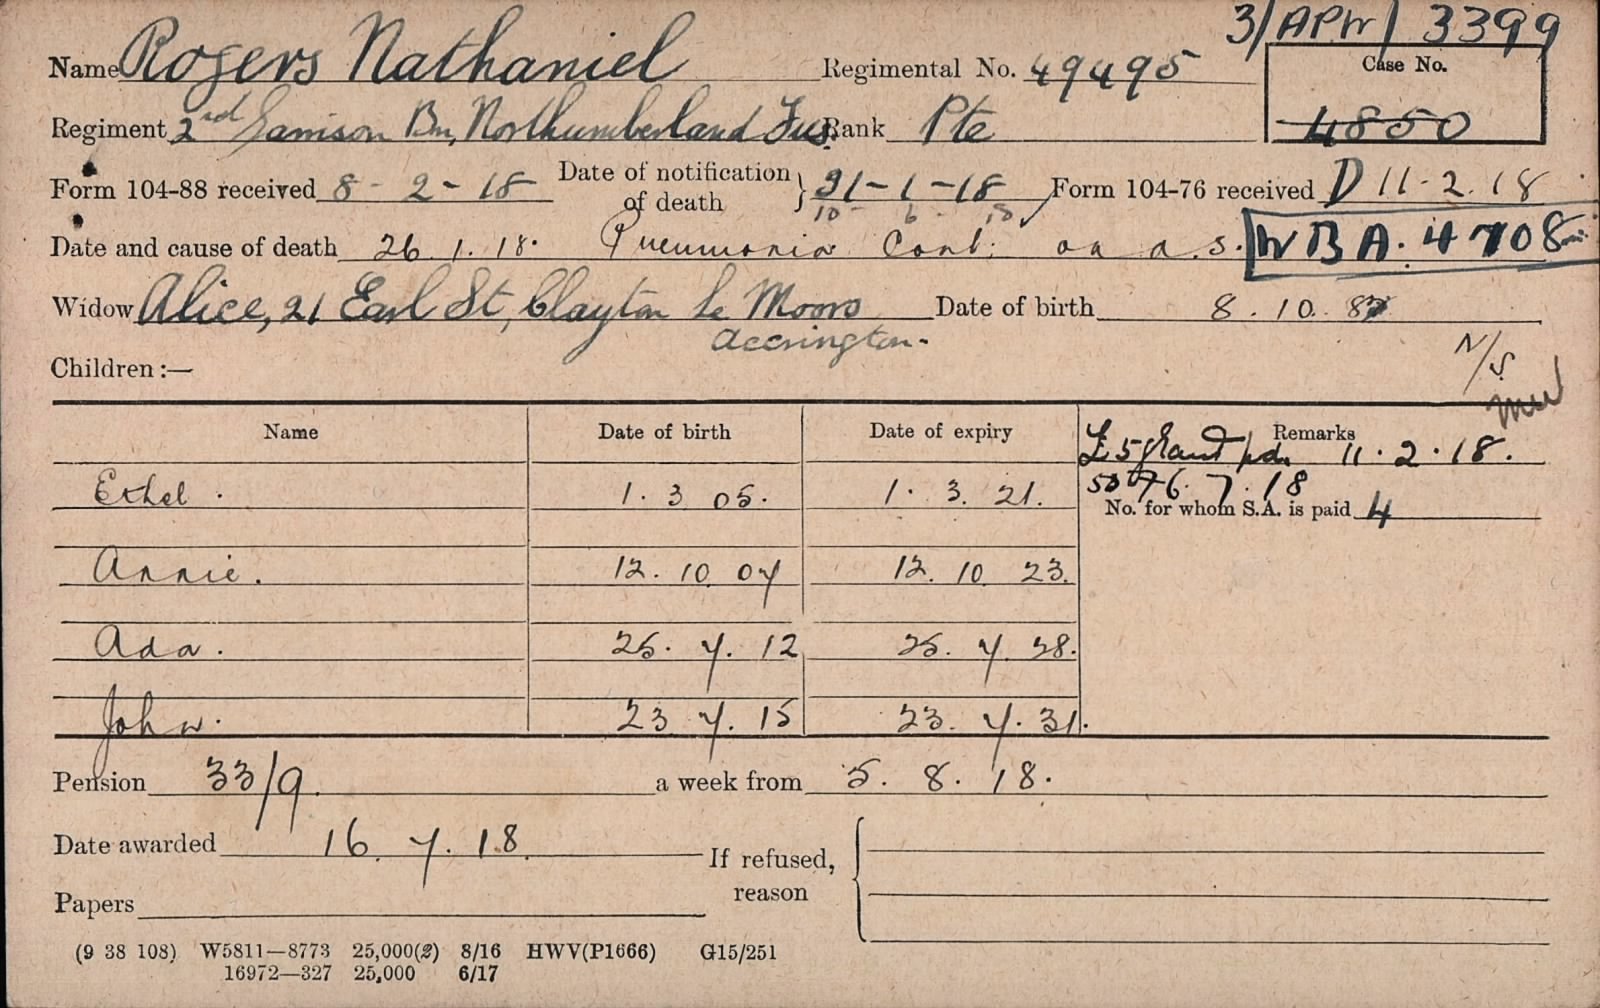 3/APW/ 3399
Name Rogers Nathaniel Regimental No. 49495 Case No.
Regiment 2nd Garrison Bn, Northumberland Fus. Rank Pte 4850
Form 104-88 received 8-2-18 Date of notification of death } 31-1-18 Form 104-76 received D 11-2.18
10-6-18
Date and cause of death 26.1.18. Pneumonia Cont. on a.s. WBA. 4708
Widow Alice, 21 Earl St, Clayton Le Moors Date of birth 8.10.
Accrington.
Children :—
N/S
Name Date of birth Date of expiry Remarks
£5 grant pd. 11.2.18.
Ethel. 1.3 05. 1.3.21. 7.18
No. for whom S.A. is paid 4
Annie. 12.10.07 12.10 23.
Ada. 25.7.12 25.7.28.
John. 23 7.15 23.7.31.
Pension 33/9. a week from 5.8.18.
Date awarded 16.7.18 If refused, reason
Papers
(9 38 108) W5811—8773 25,000(2) 8/16 HWV(P1666) G15/251
16972—327 25,000 6/17